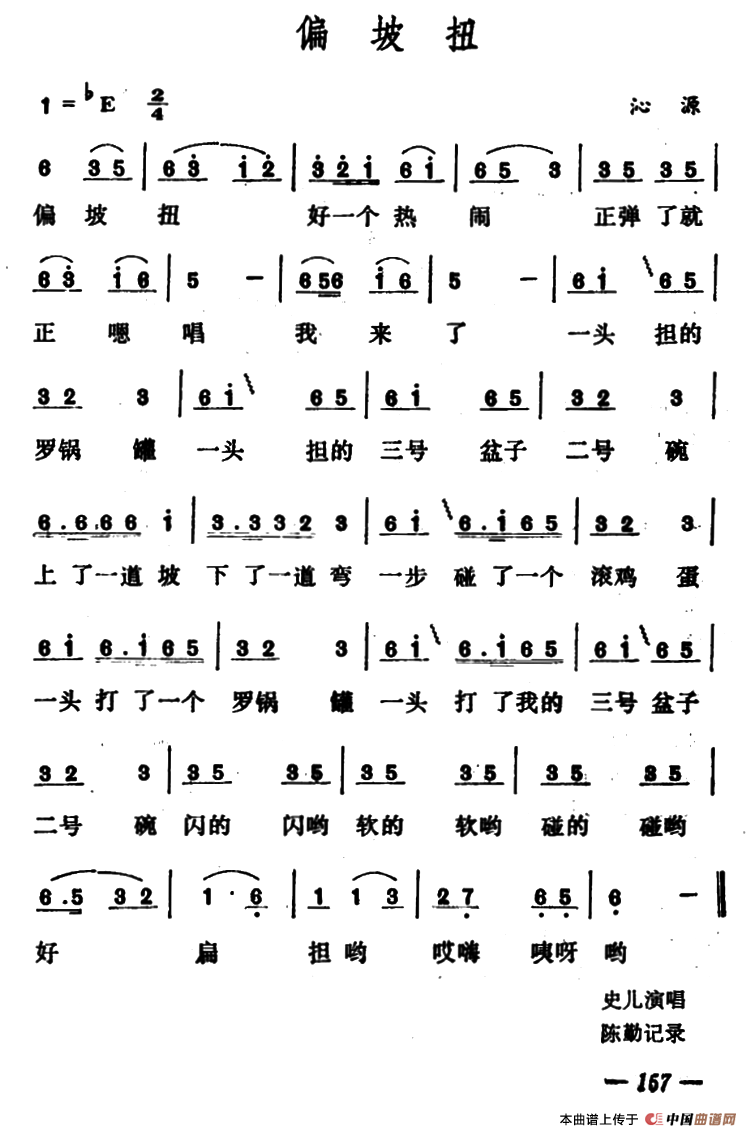 偏坡扭
1=♭E 2/4 沁源
6 3 5 | 6 3 i 2 | 3 2 i 6 i | 6 5 3 | 3 5 3 5 |
偏坡 扭 好一个热 闹 正弹了就
6 3 i 6 | 5 — | 6 5 6 i 6 | 5 — | 6 i 6 5 |
正 嗯 唱 我 来 了 一头 担的
3 2 3 | 6 i 6 5 | 6 i 6 5 | 3 2 3 |
罗锅 罐 一头 担的 三号 盆子 二号 碗
6. 6 6 6 i | 3. 3 3 2 3 | 6 i 6. i 6 5 | 3 2 3 |
上了一道坡 下了一道弯 一步碰了一个 滚鸡 蛋
6 i 6. i 6 5 | 3 2 3 | 6 i 6. i 6 5 | 6 i 6 5 |
一头打了一个 罗锅 罐 一头 打了我的 三号盆子
3 2 3 | 3 5 3 5 | 3 5 3 5 | 3 5 3 5 |
二号 碗 闪的 闪哟 软的 软哟 碰的 碰哟
6. 5 3 2 | 1 · 6 | 1 1 3 | 2 7 6 5 | 6 — ‖
好 扁 担哟 哎嗨 咦呀 哟
史儿演唱
陈勤记录
— 157 —
本曲谱上传于 中国曲谱网